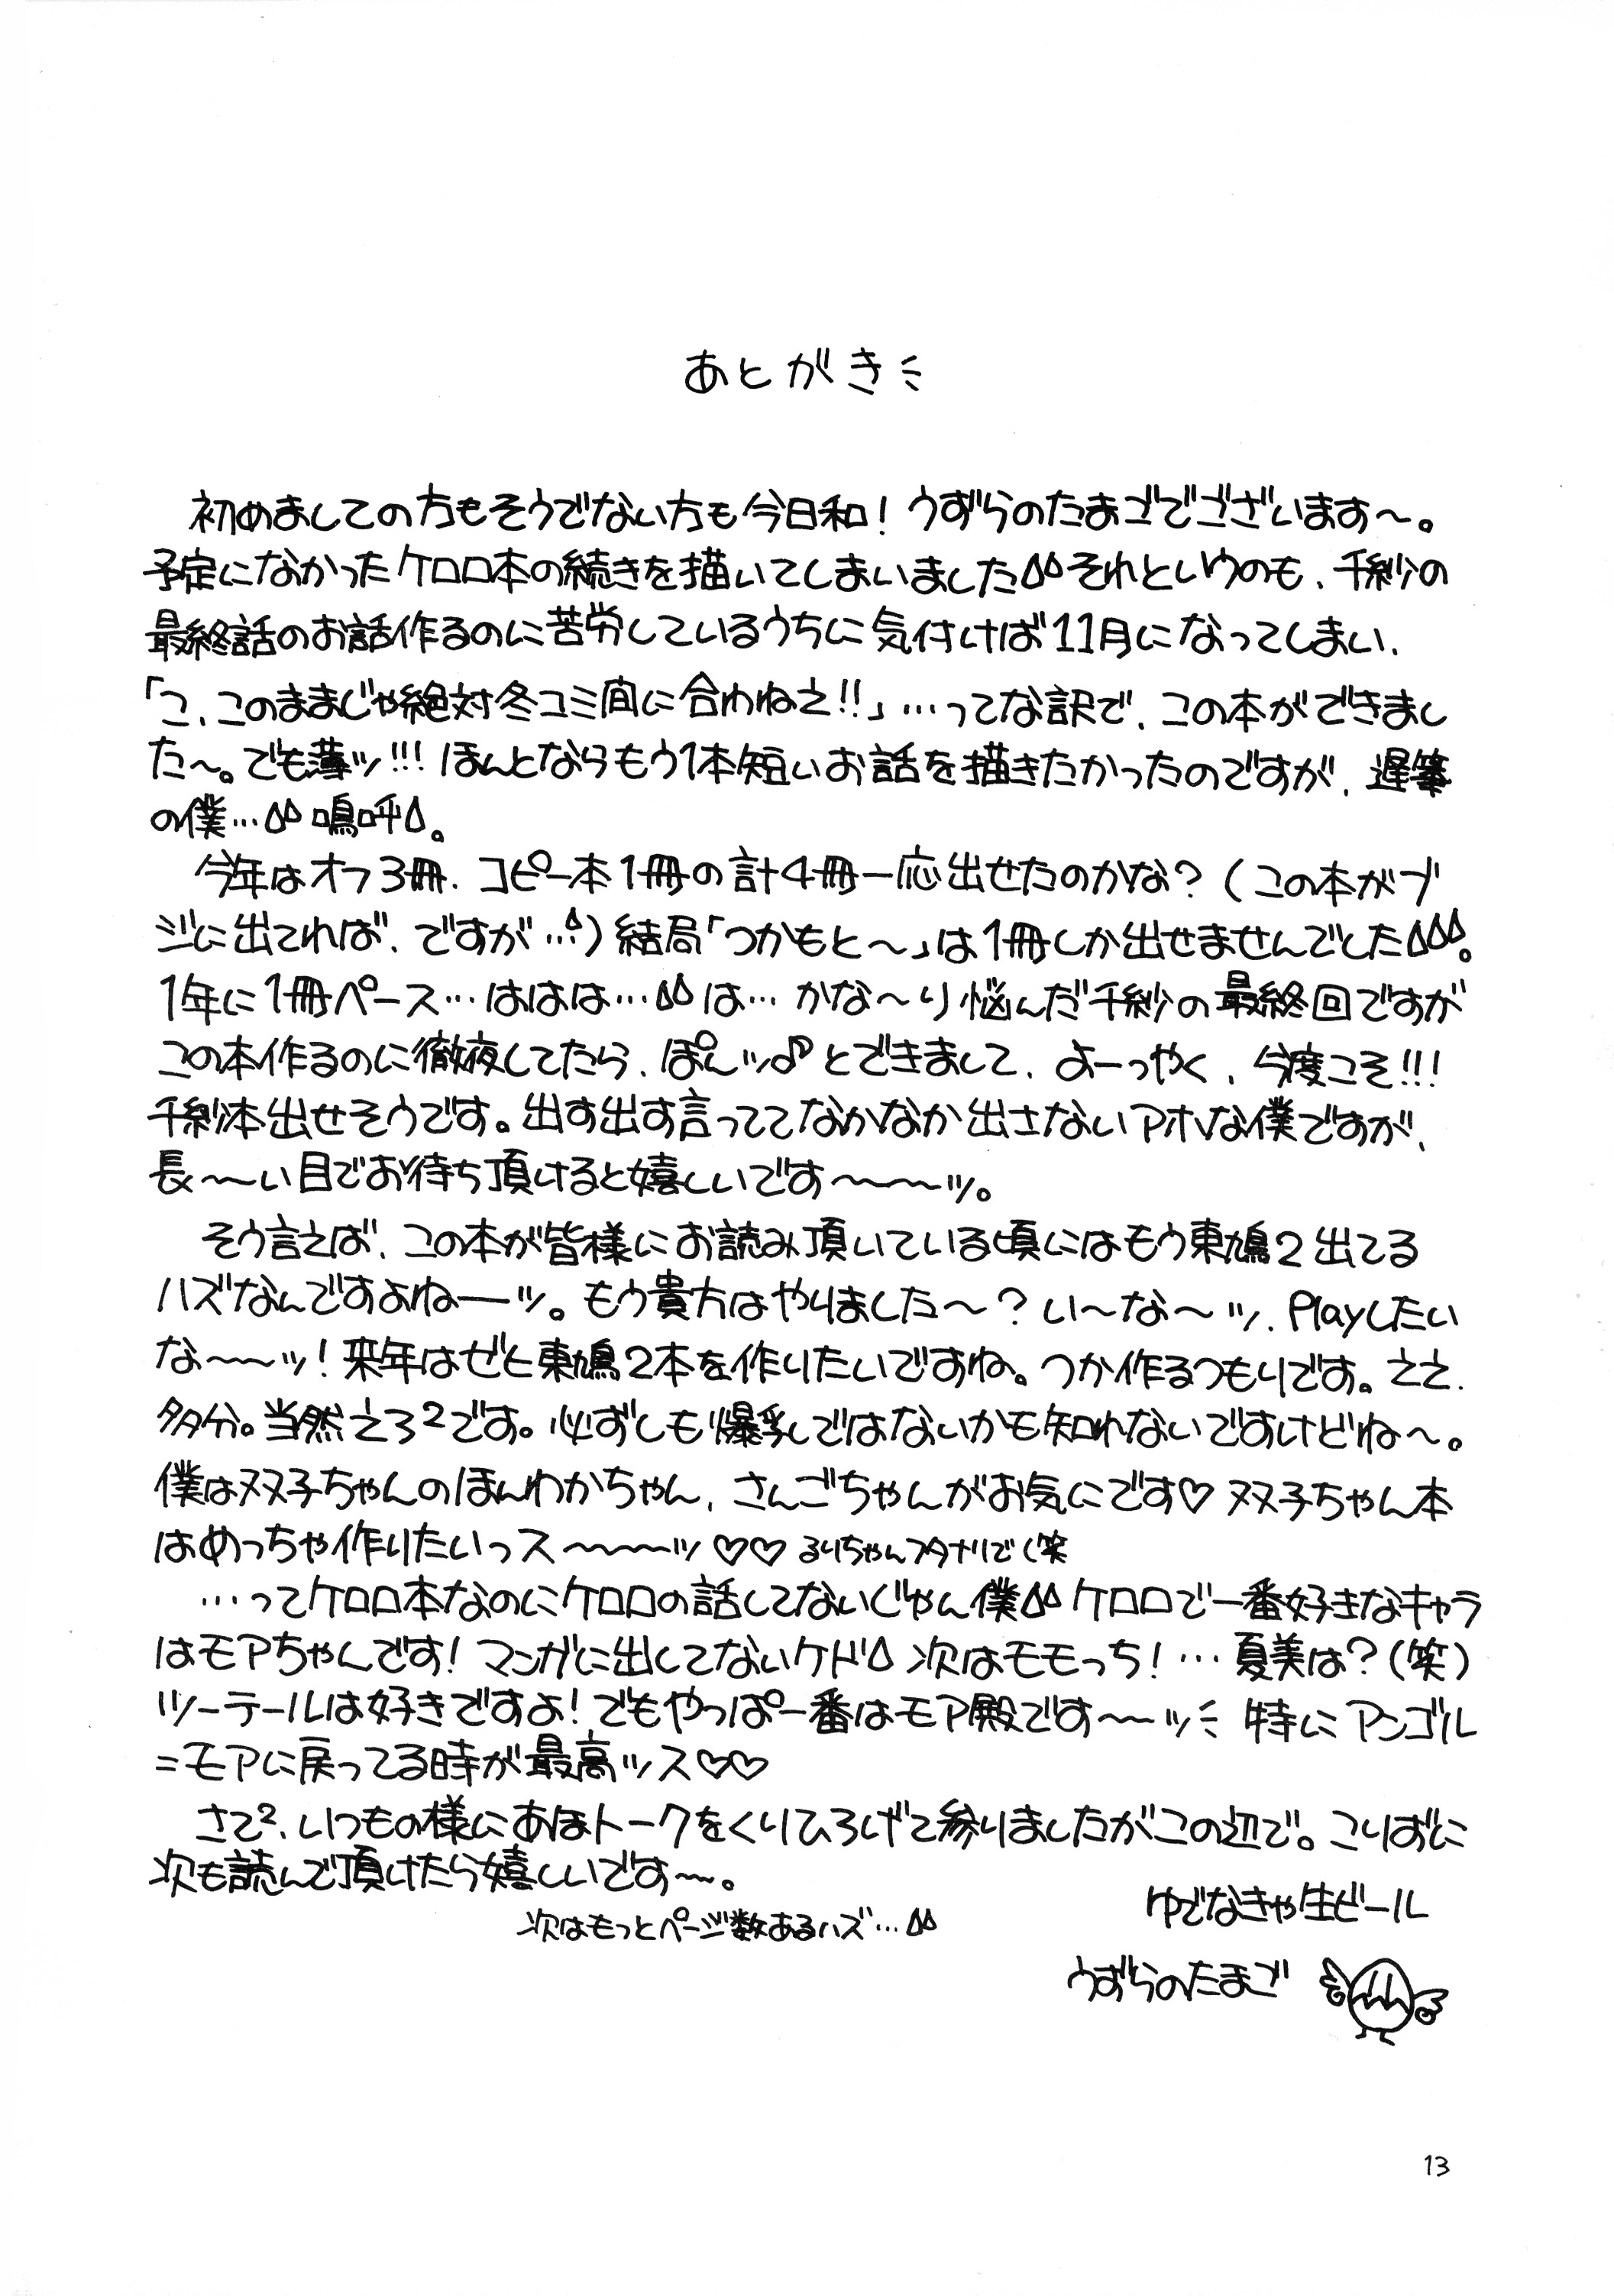 あとがき
初めましての方もそうでない方も今日和！うずらのたまごでございます〜。
予定になかったケロロ本の続きを描いてしまいました それというのも、千紗の
最終話のお話作るのに苦労しているうちに気付けば11月になってしまい、
「こ、このままじゃ絶対冬コミ間に合わねえ!!」…ってな訳で、この本ができまし
た〜。でも薄ッ!!! ほんとならもう1本短いお話を描きたかったのですが、遅筆
の僕… 嗚呼。
今年はオフ3冊、コピー本1冊の計4冊一応出せたのかな？（この本がブ
ジに出てれば、ですが…）結局「つかもと〜」は1冊しか出せませんでした。
1年に1冊ペース…ははは… は… かな〜り悩んだ千紗の最終回ですが
この本作るのに徹夜してたら、ぽんッ♪とできまして、よーっやく、今度こそ!!!
千紗本出せそうです。出す出す言っててなかなか出さないアホな僕ですが、
長〜い目でお待ち頂けると嬉しいです〜〜〜ッ。
そう言えば、この本が皆様にお読み頂いている頃にはもう東鳩2出てる
ハズなんですよねーッ。もう貴方はやりました〜？い〜な〜ッ、Playしたい
な〜〜ッ！来年はぜひ東鳩2本を作りたいですね。つか作るつもりです。ええ、
多分。当然えろ²です。必ずしも爆乳ではないかも知れないですけどね〜。
僕は双子ちゃんのほんわかちゃん、さんごちゃんがお気にです♡ 双子ちゃん本
はめっちゃ作りたいっス〜〜〜ッ♡♡ るりちゃんフタナリで（笑
…ってケロロ本なのにケロロの話してないじゃん僕 ケロロで一番好きなキャラ
はモアちゃんです！マンガに出してないケド 次はモモっち！…夏美は？（笑）
ツーテールは好きですよ！でもやっぱ一番はモア殿です〜〜ッ 特にアンゴル
＝モアに戻ってる時が最高ッス♡♡
さて²、いつもの様にあほトークをくりひろげて参りましたがこの辺で。こりずに
次も読んで頂けたら嬉しいです〜。
次はもっとページ数あるハズ…
ゆでなきゃ生ビール
うずらのたまご
13